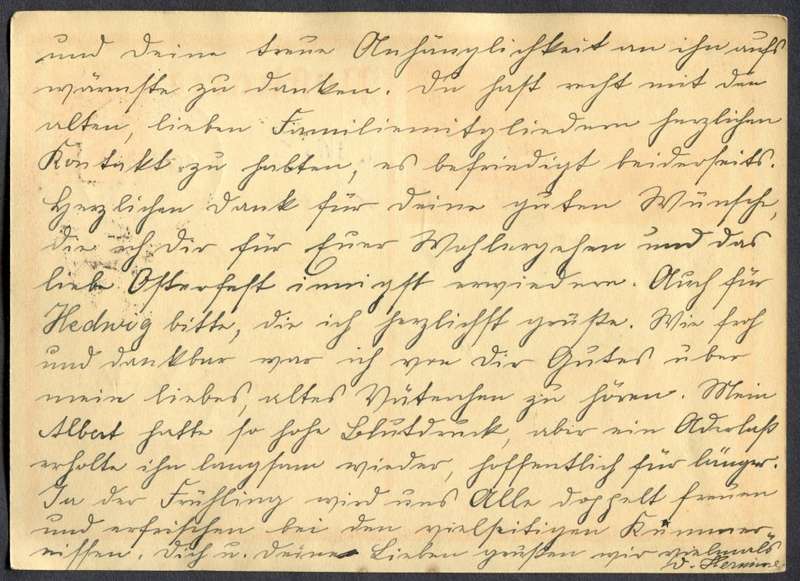 und Deine treue Anhänglichkeit an ihn aufs
wärmste zu danken. Du hast recht mit den
alten, lieben Familienmitgliedern herzlichen
Kontakt zu halten, es befriedigt beiderseits.
Herzlichen Dank für Deine guten Wünsche,
die ich Dir für Euer Wohlergehen und das
liebe Osterfest innigst erwiedern. Auch für
Hedwig bitte, die ich herzlichst grüße. Wie froh
und dankbar war ich von Dir Gutes über
mein liebes, altes Väterchen zu hören. Mein
Albert hatte so hohe Blutdruck, aber ein Aderlaß
erholte ihn langsam wieder, hoffentlich für länger.
Ja der Frühling wird uns Alle doppelt freuen
und erfrischen bei den vielseitigen Kümmer-
nissen. Dich u. Deine Lieben grüßen wir vielmals
D. Hermine